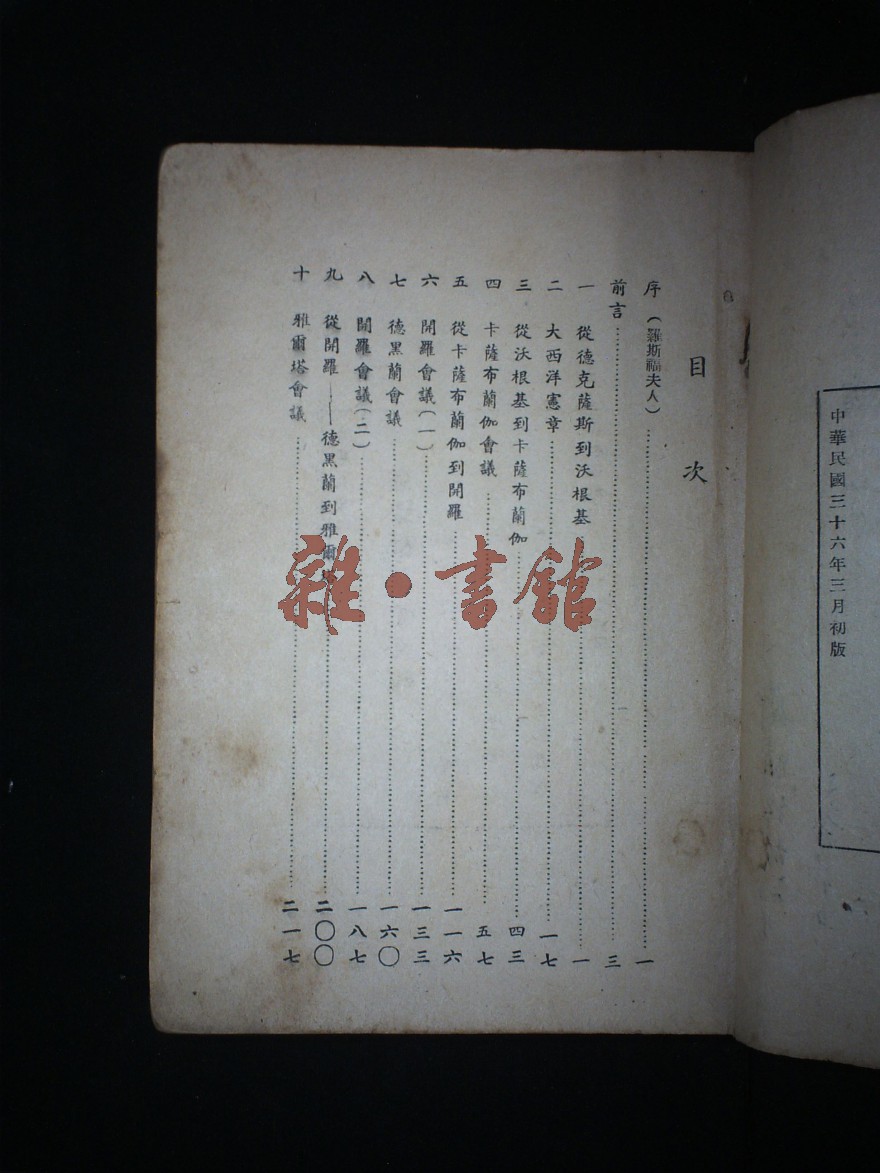 中華民國三十六年三月初版
目次
序(羅斯福夫人)……一
前言……三
一 從德克薩斯到沃根基……一
二 大西洋憲章……一七
三 從沃根基到卡薩布蘭伽……四三
四 卡薩布蘭伽會議……五七
五 從卡薩布蘭伽到開羅……一一六
六 開羅會議(一)……一三三
七 德黑蘭會議……一六〇
八 開羅會議(二)……一八七
九 從開羅——德黑蘭到雅爾……二〇〇
十 雅爾塔會議……二一七
雜·書館